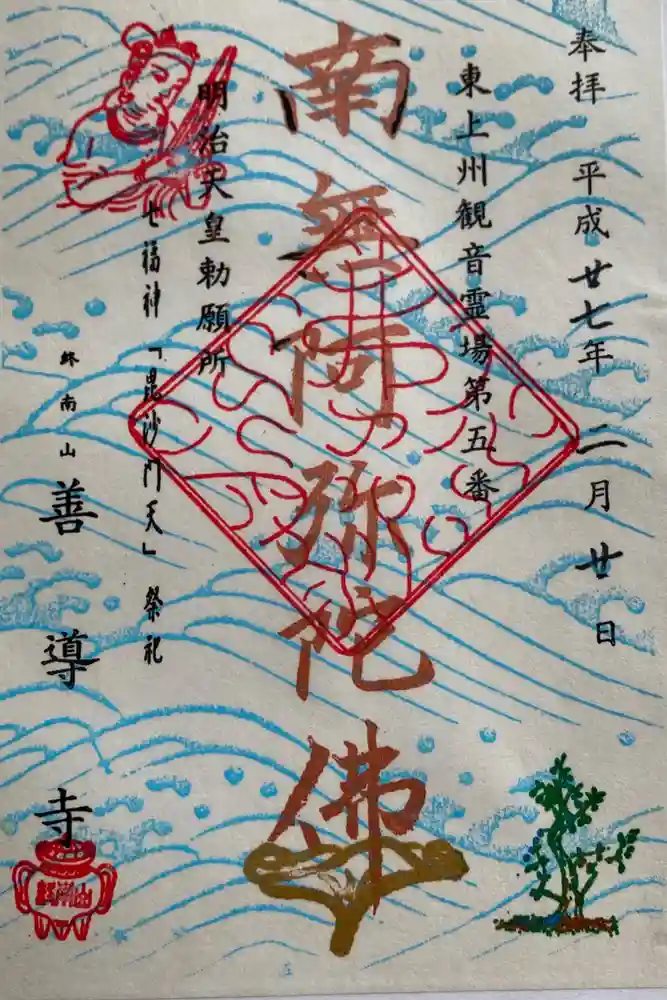 奉拝 平成廿七年二月廿日
東上州観音霊場第五番
南無阿弥陀佛
明治天皇勅願所
七福神「毘沙門天」祭祀
終南山 善導寺